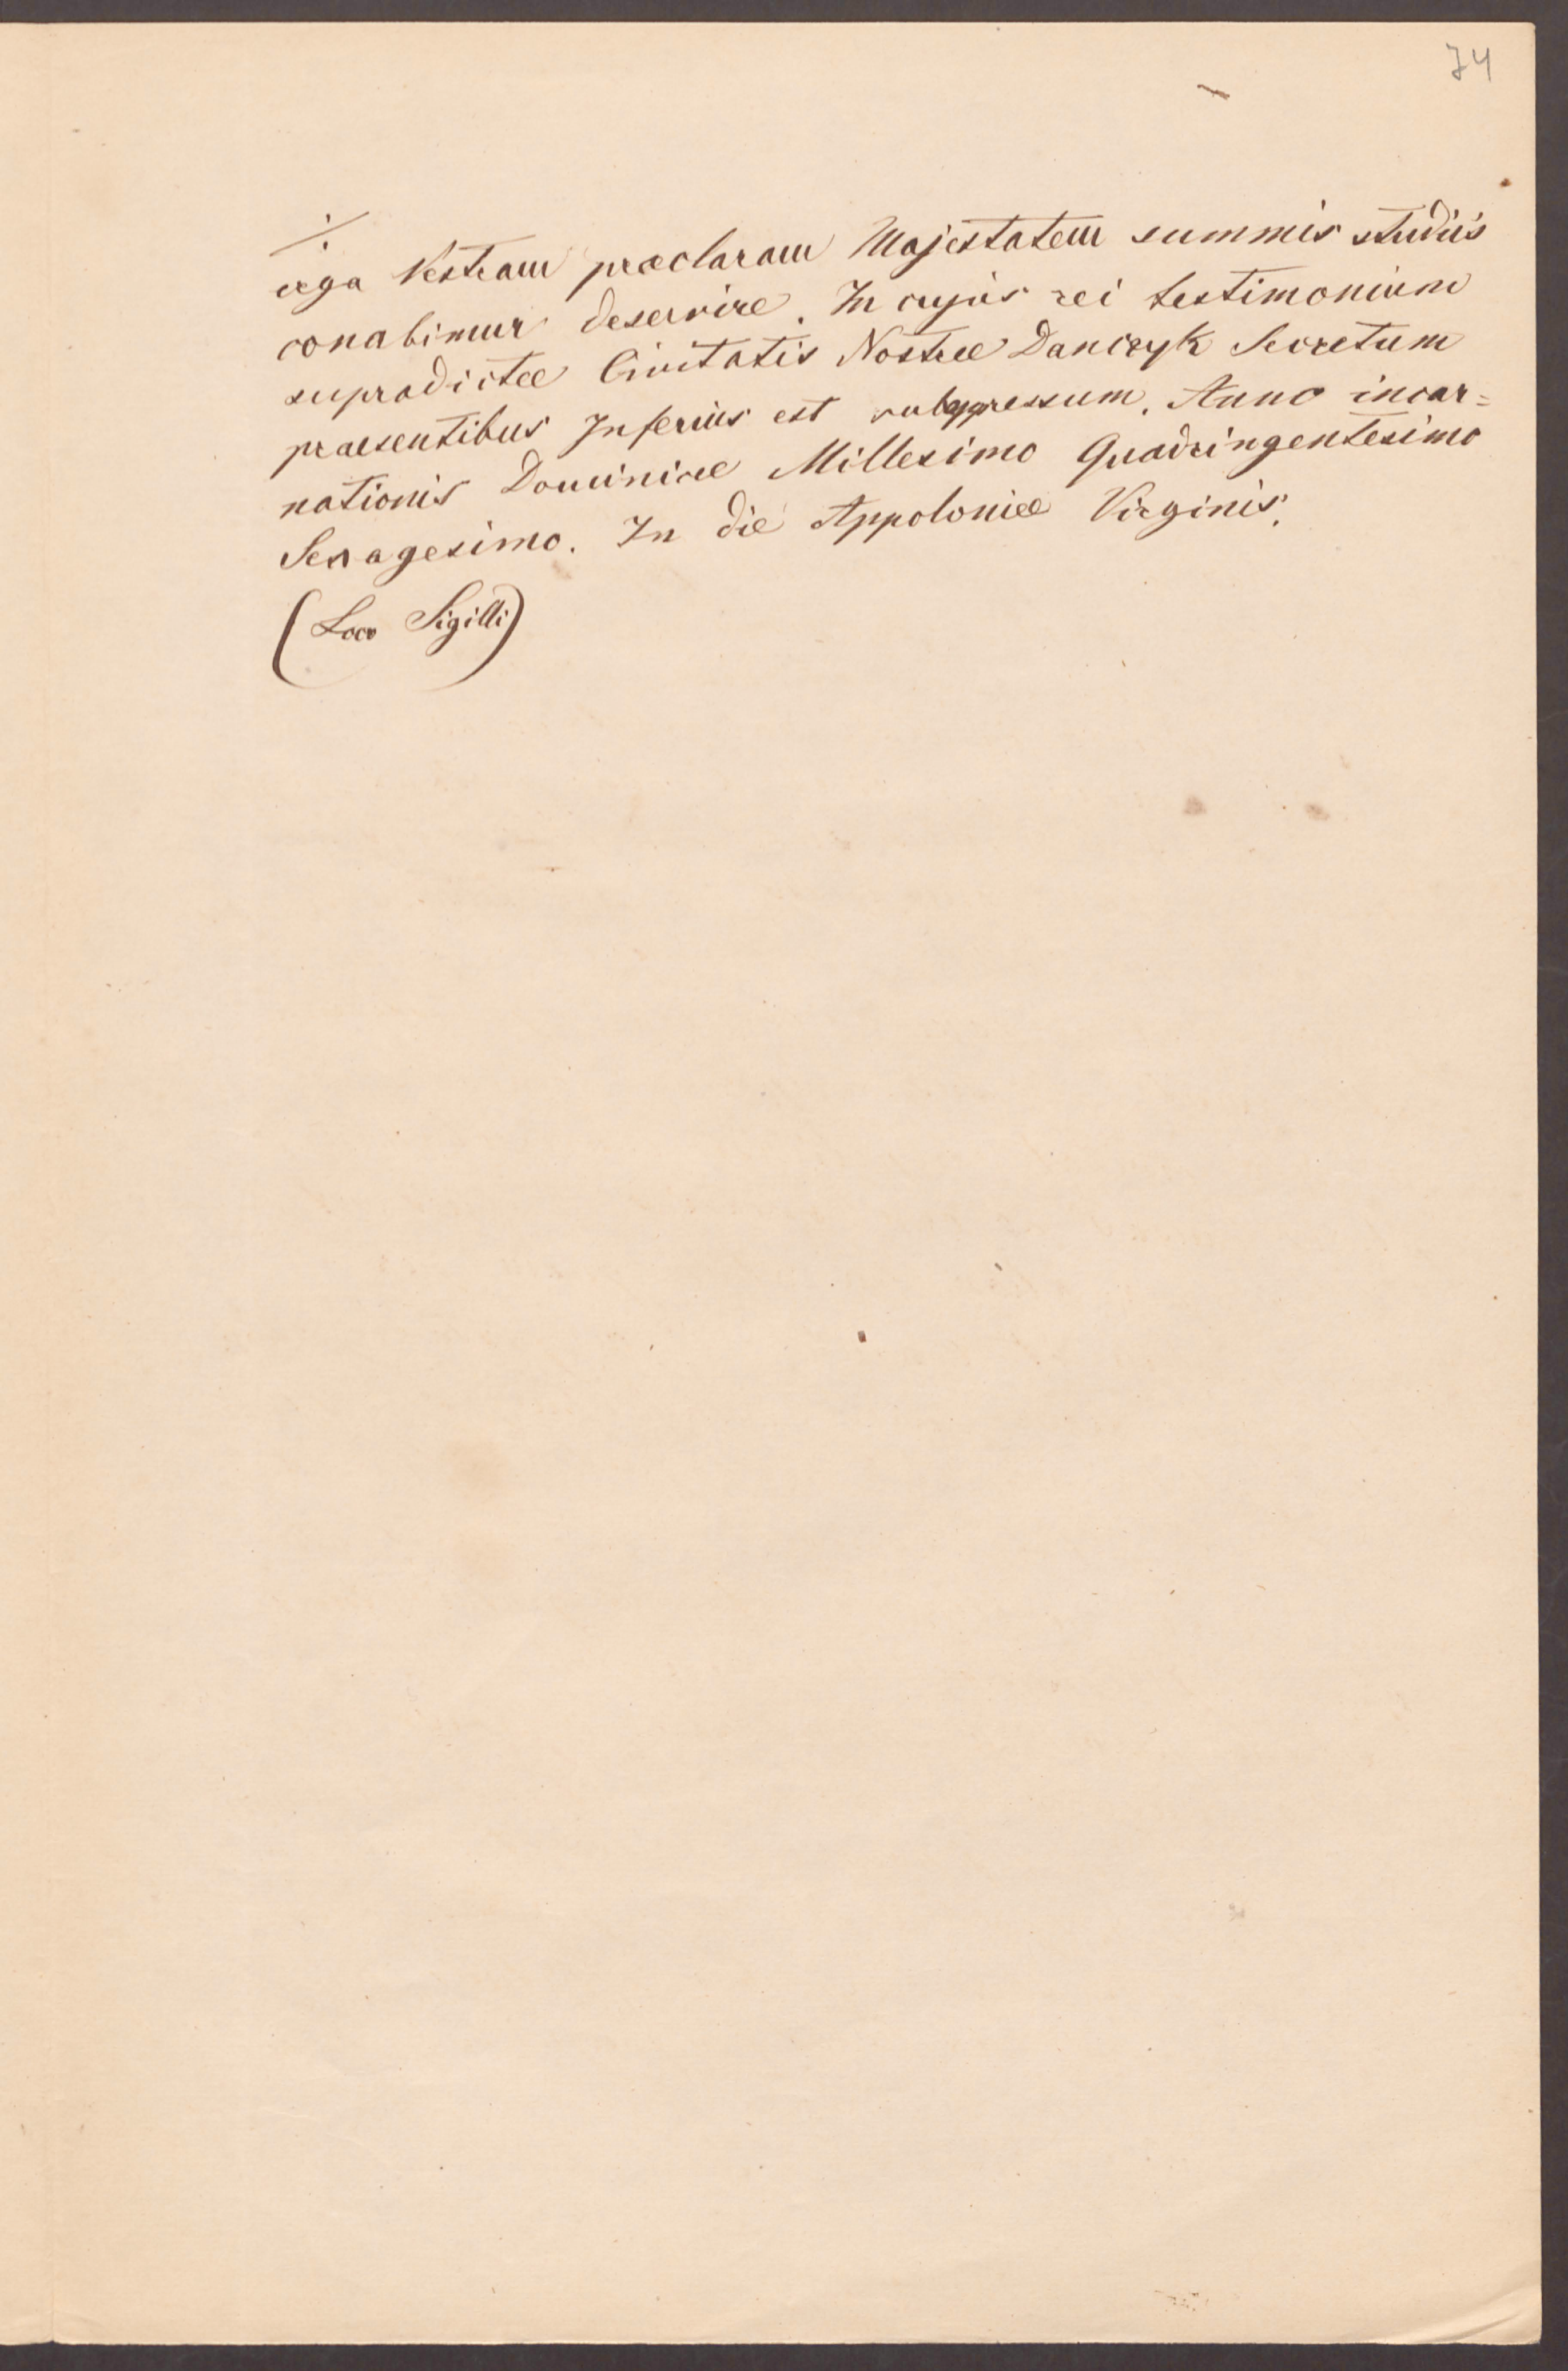 74
./.
erga Vestram præclaram Majestatem summis studiis
conabimur deservire. In cujus rei testimonium
supradictæ Civitatis Nostræ Danczyk Secretum
praesentibus Inferius est subappressum. Anno incar=
nationis Dominicæ Millesimo Quadringentesimo
Sexagesimo. In die Appoloniæ Virginis.
(Loco Sigilli)